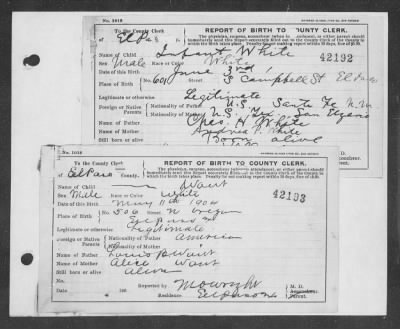 No. 1018
To the County Clerk
El Paso
REPORT OF BIRTH TO COUNTY CLERK.
The physician, surgeon, accoucheur present, or either parent should
immediately send this Report accurately filled out to the County Clerk of the County in
which the birth takes place. Penalty for not making report within 30 days, fine of $50.
42192
Name of Child Infant White
Sex Male Race or Color White
Date of this Birth June 3rd
Place of Birth No 601 S Campbell St El Paso
Legitimate or otherwise Legitimate
Foreign or Native Parents
U.S. Santa Fe N.M
U.S. Tex. San
Name of Father H White
Name of Mother White
Born alive
No. 1018
To the County Clerk
El Paso County.
REPORT OF BIRTH TO COUNTY CLERK.
The physician, surgeon, accoucheur present, or either parent should
immediately send this Report accurately filled out to the County Clerk of the County in
which the birth takes place. Penalty for not making report within 30 days, fine of $50.
42193
Name of Child Wait
Sex Male Race or Color White
Date of this Birth May 11th 1904
Place of Birth No. 506 N Oregon
El Paso
Legitimate or otherwise Legitimate
Foreign or Native Parents
Nationality of Father American
Nationality of Mother
Name of Father Louis B Wait
Name of Mother Alice Wait
Still born or alive Alive
Date 190
Reported by M O Wright M. D.
Accoucheur.
Parent.
Residence El Paso